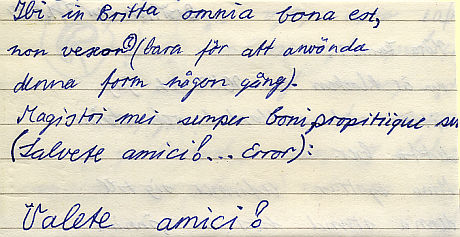 Ibi in Britta omnia bona est,
non vexor! (bara för att använda
denna form någon gång).
Magistri mei semper boni propitiique su
(Salvete amici! ... Error):
Valete amici!